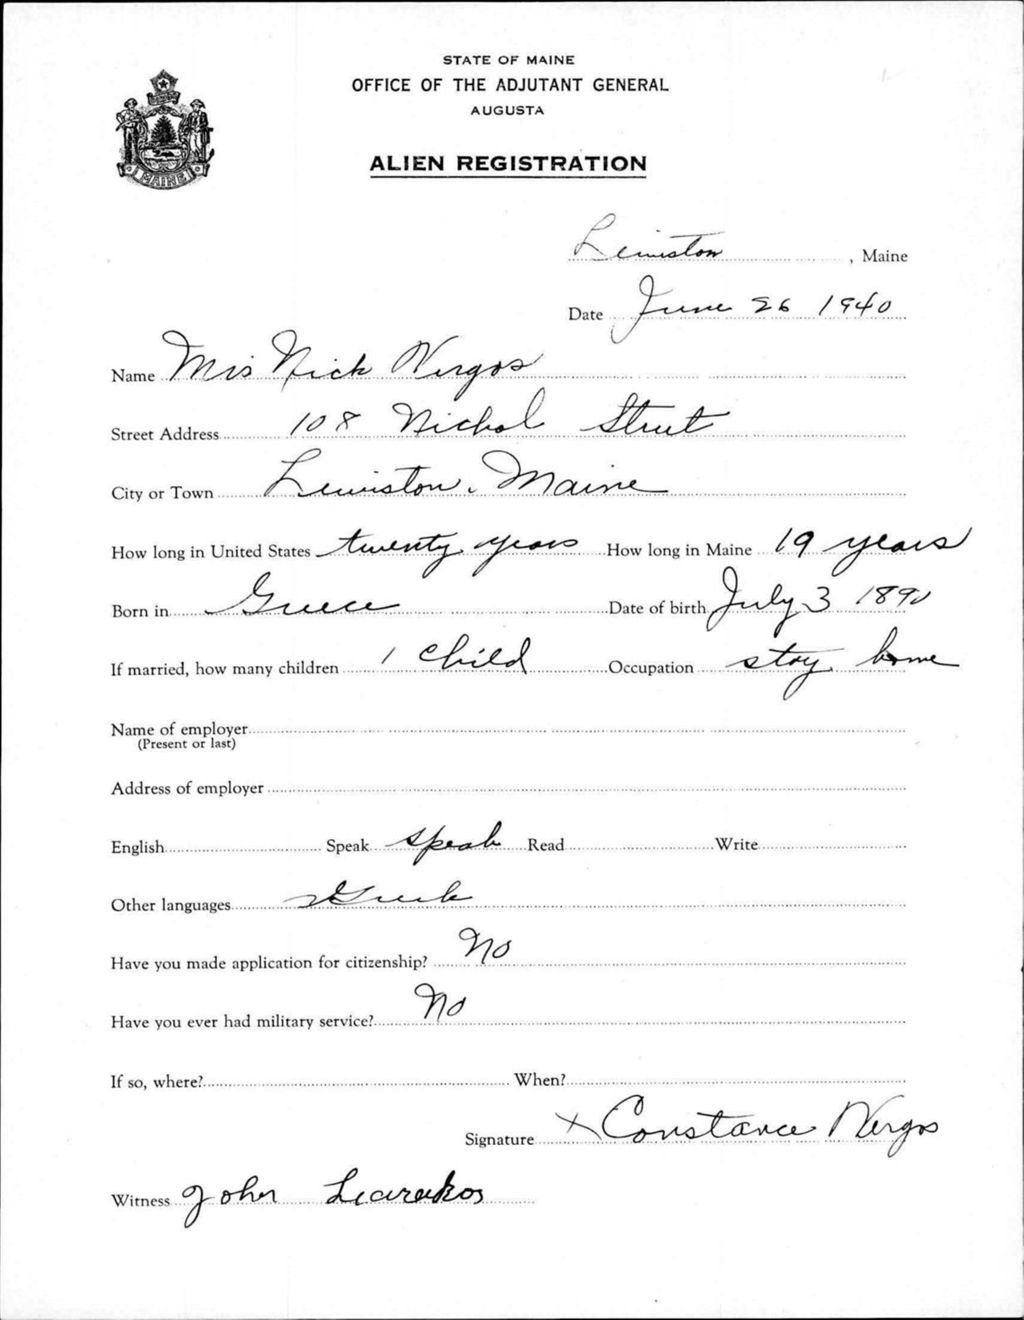 STATE OF MAINE
OFFICE OF THE ADJUTANT GENERAL
AUGUSTA
ALIEN REGISTRATION
MAINE
Lewiston, Maine
Date June 26 1940
Name Mrs Nick Vergos
Street Address 108 Nichol Street
City or Town Lewiston, Maine
How long in United States twenty years How long in Maine 19 years
Born in Greece Date of birth July 3 1890
If married, how many children 1 child Occupation stay home
Name of employer
(Present or last)
Address of employer
English Speak speak Read Write
Other languages Greek
Have you made application for citizenship? No
Have you ever had military service? No
If so, where? When?
Signature x Constance Vergos
Witness John